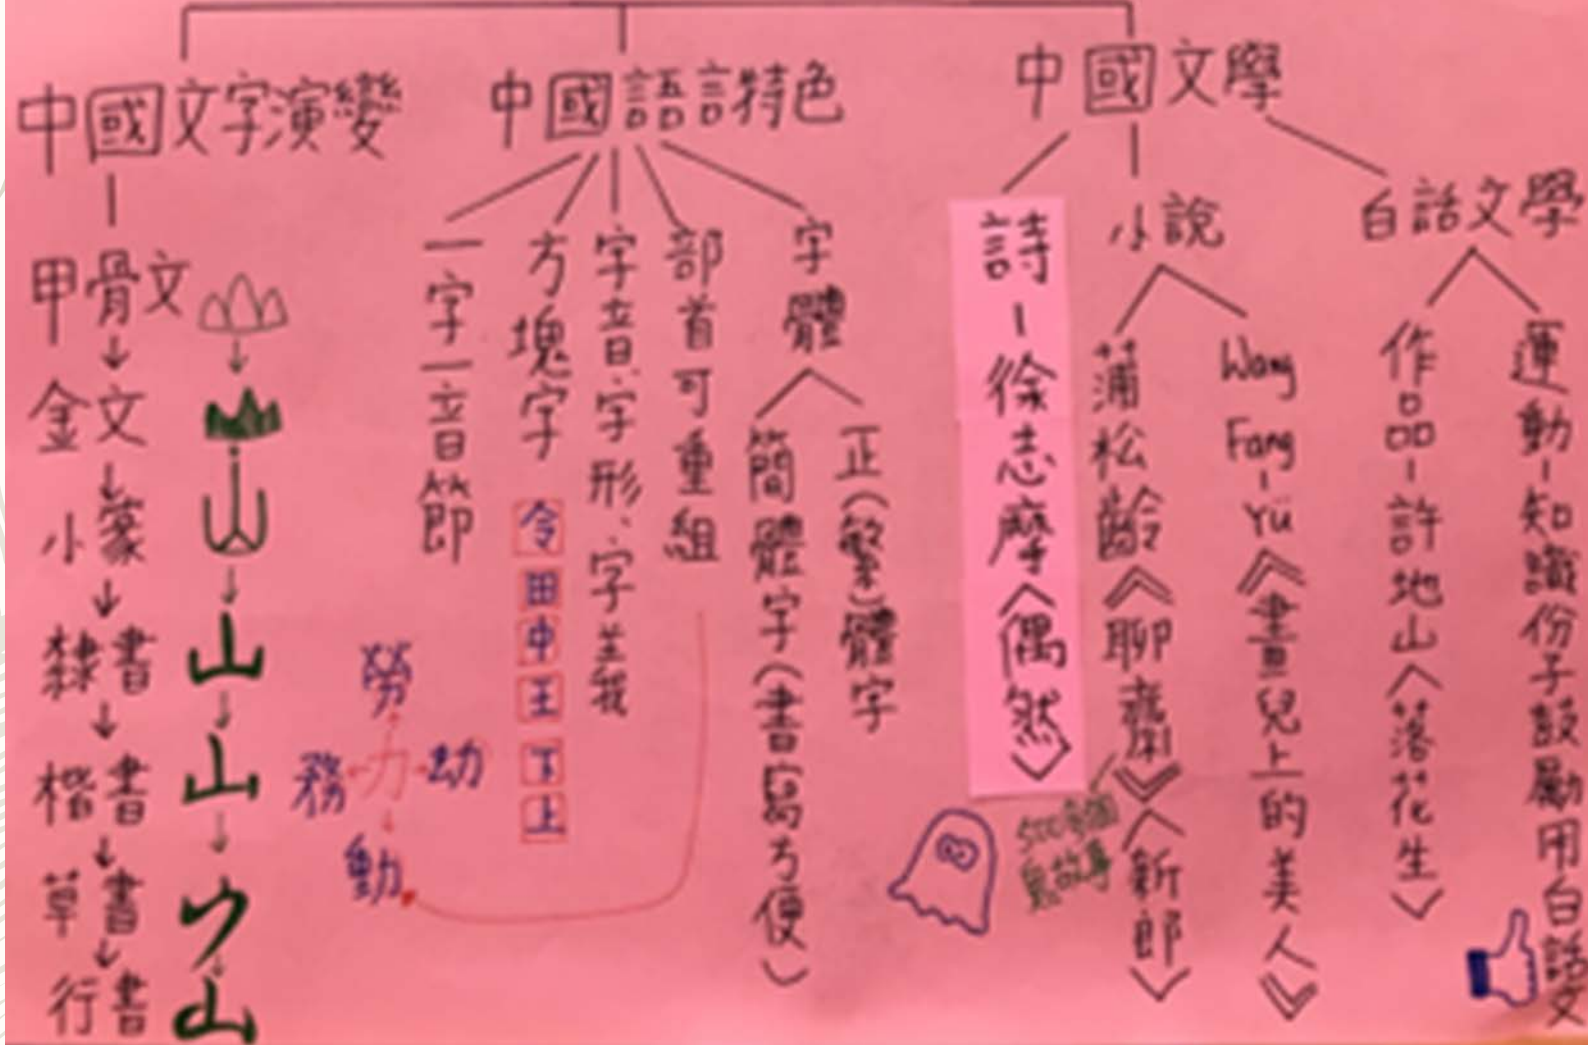 中國文字演變
甲骨文
金文
小篆
隸書
楷書
草書
行書
中國語言特色
一字一音節
方塊字
令
田
中
王
下
上
字音、字形、字義
部首可重組
勞
務 力 劫
動
字體
簡體字(書寫方便)
正(繁)體字
中國文學
詩-徐志摩〈偶然〉
小說
蒲松齡《聊齋》〈新郎〉
500多個
鬼故事
Wang Fang-Yü《畫兒上的美人》
白話文學
作品-許地山〈落花生〉
運動-知識份子鼓勵用白話文